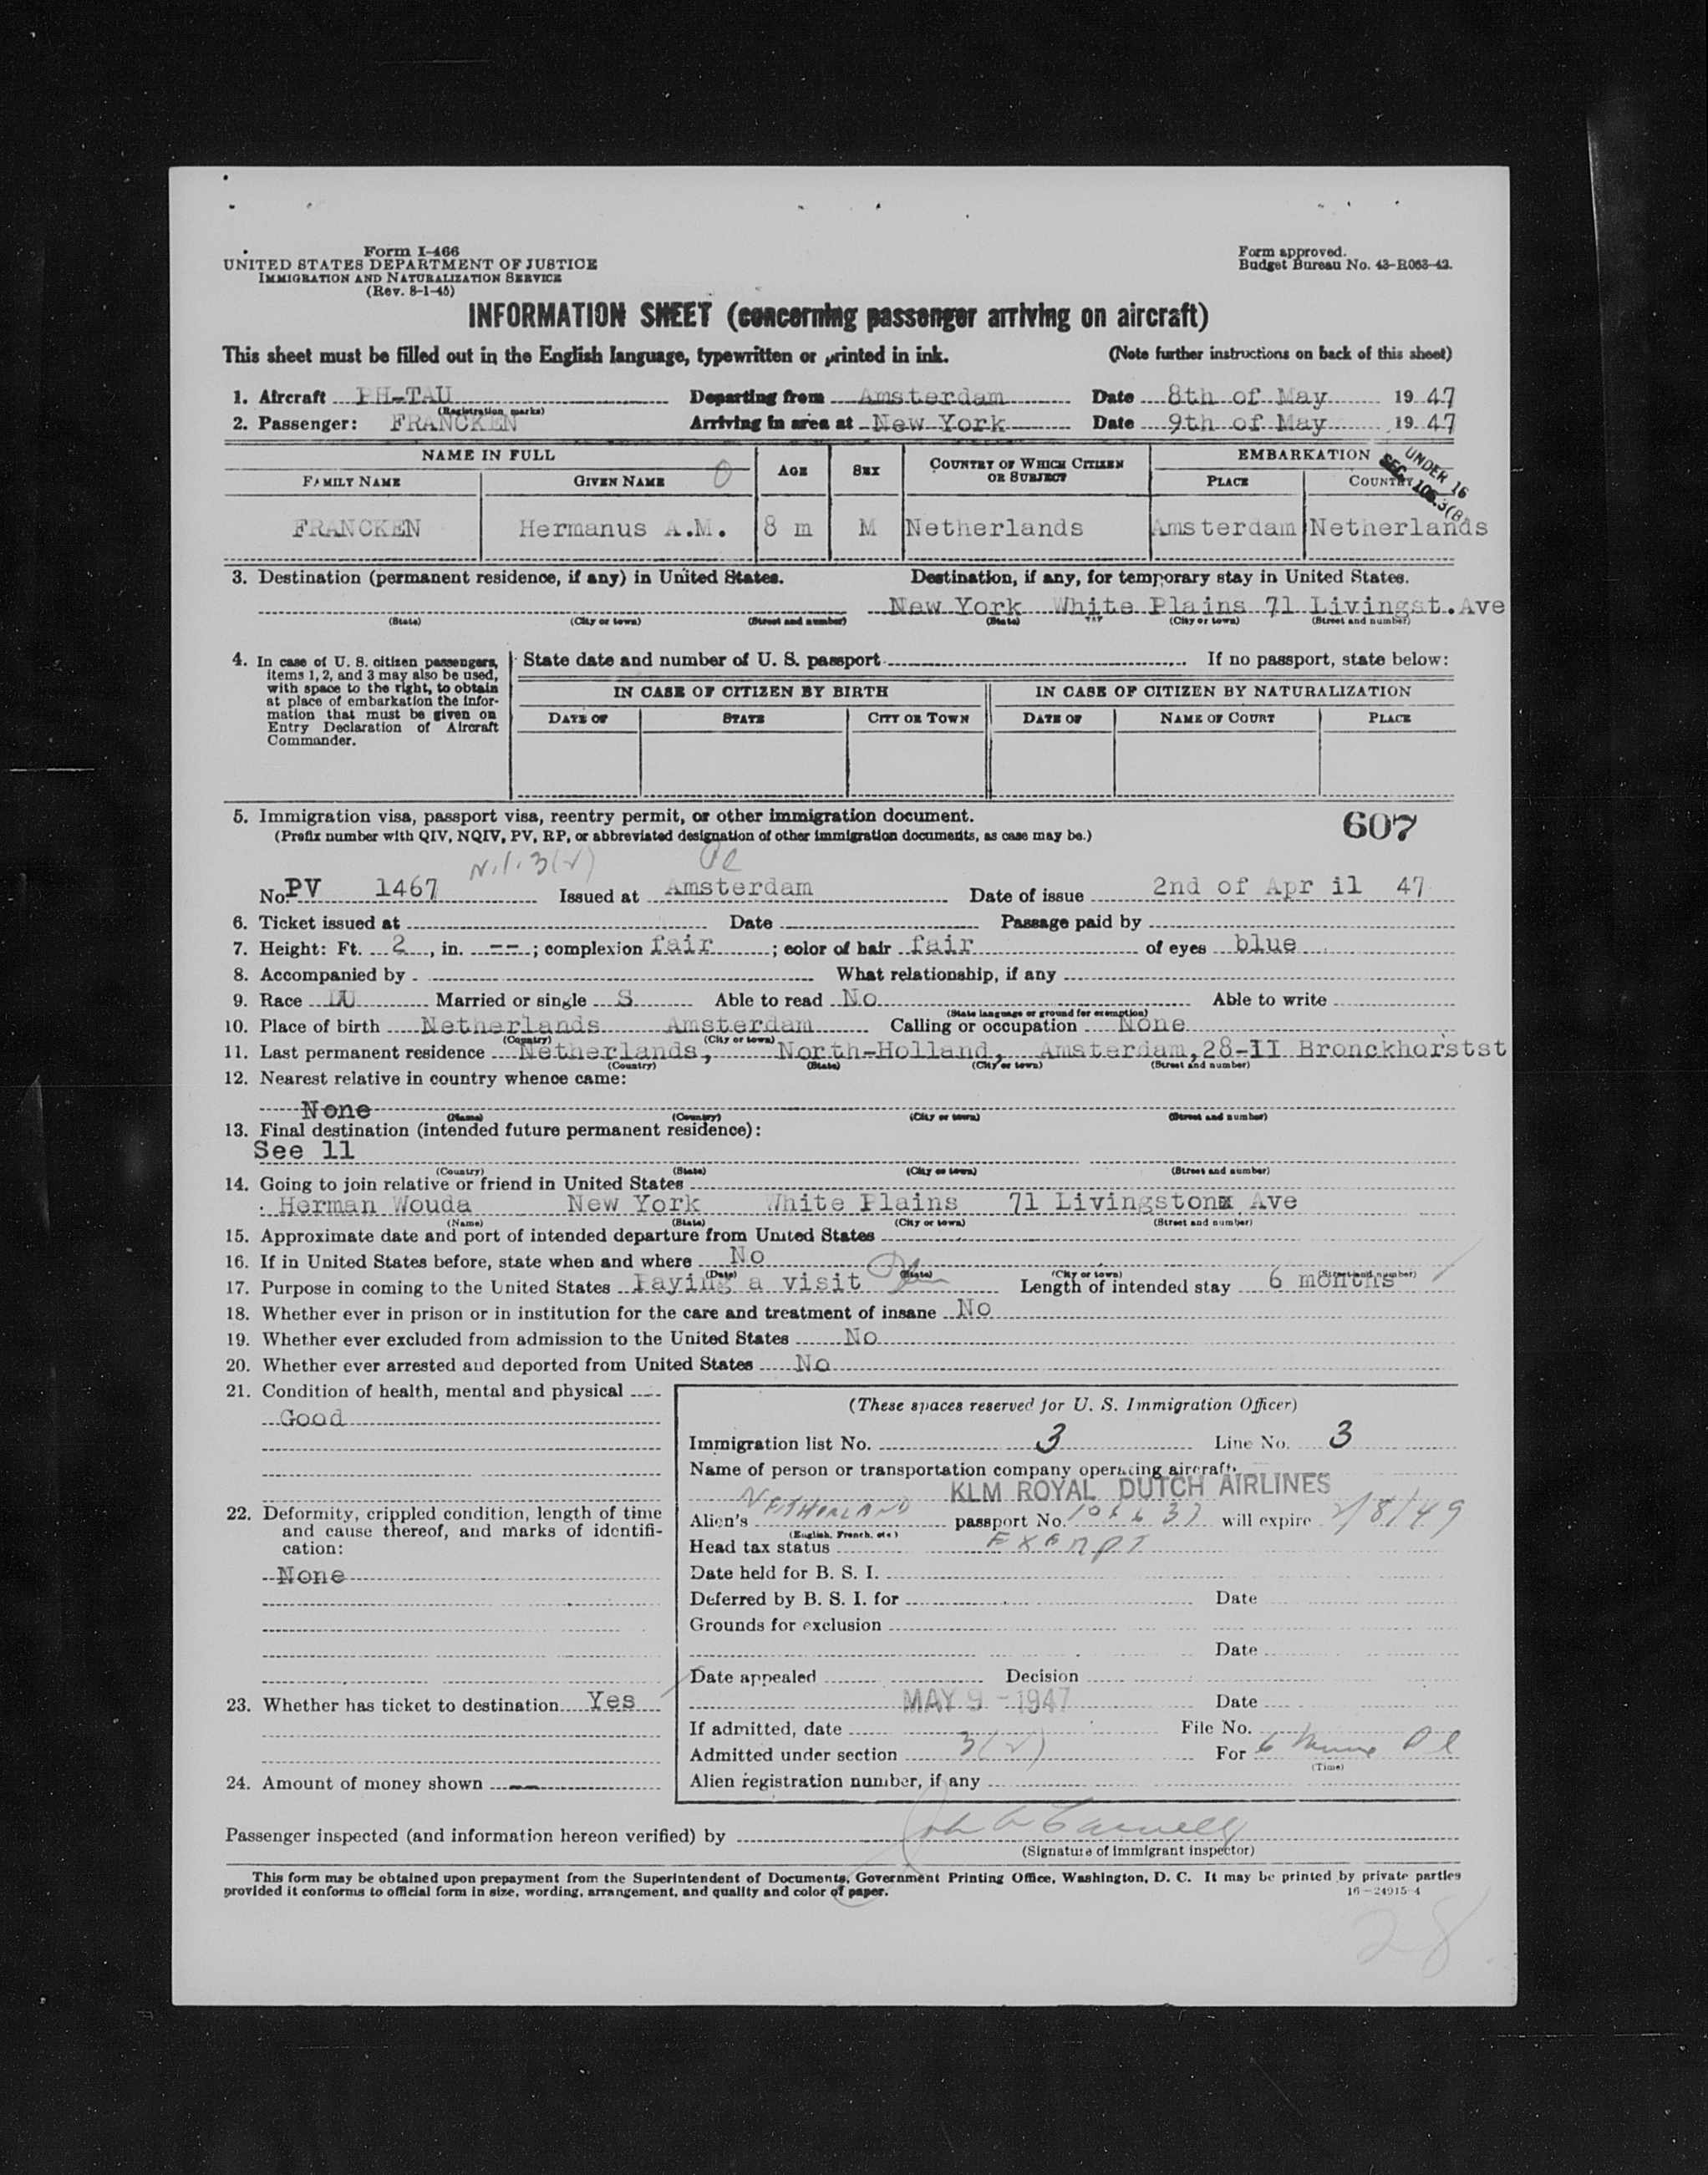 Form I-466
UNITED STATES DEPARTMENT OF JUSTICE
IMMIGRATION AND NATURALIZATION SERVICE
(Rev. 8-1-45)
Form approved.
Budget Bureau No. 43-R063-42.
INFORMATION SHEET (concerning passenger arriving on aircraft)
This sheet must be filled out in the English language, typewritten or printed in ink. (Note further instructions on back of this sheet)
1. Aircraft PH-TAU Departing from Amsterdam Date 8th of May 19 47
(Registration marks)
2. Passenger: FRANCKEN Arriving in area at New York Date 9th of May 19 47
NAME IN FULL AGE SEX COUNTRY OF WHICH CITIZEN OR SUBJECT EMBARKATION
FAMILY NAME GIVEN NAME PLACE COUNTRY
UNDER 16
SEC 105.3(B)
FRANCKEN Hermanus A.M. 8 m M Netherlands Amsterdam Netherlands
3. Destination (permanent residence, if any) in United States. Destination, if any, for temporary stay in United States.
New York White Plains 71 Livingst.Ave
(State) (City or town) (Street and number) (State) (City or town) (Street and number)
4. In case of U. S. citizen passengers,
items 1, 2, and 3 may also be used,
with space to the right, to obtain
at place of embarkation the infor-
mation that must be given on
Entry Declaration of Aircraft
Commander.
State date and number of U. S. passport If no passport, state below:
IN CASE OF CITIZEN BY BIRTH IN CASE OF CITIZEN BY NATURALIZATION
DATE OF STATE CITY OR TOWN DATE OF NAME OF COURT PLACE
5. Immigration visa, passport visa, reentry permit, or other immigration document.
(Prefix number with QIV, NQIV, PV, RP, or abbreviated designation of other immigration documents, as case may be.)
607
No. PV 1467 Issued at Amsterdam Date of issue 2nd of Apr il 47
6. Ticket issued at Date Passage paid by
7. Height: Ft. 2, in. --; complexion fair; color of hair fair of eyes blue
8. Accompanied by What relationship, if any
9. Race DU Married or single S Able to read No Able to write
(State language or ground for exemption)
10. Place of birth Netherlands Amsterdam Calling or occupation None
(Country) (City or town)
11. Last permanent residence Netherlands, North-Holland, Amsterdam,28-II Bronckhorstst
(Country) (State) (City or town) (Street and number)
12. Nearest relative in country whence came:
None
(Name) (Country) (City or town) (Street and number)
13. Final destination (intended future permanent residence):
See 11
(Country) (State) (City or town) (Street and number)
14. Going to join relative or friend in United States
Herman Wouda New York White Plains 71 Livingston Ave
(Name) (State) (City or town) (Street and number)
15. Approximate date and port of intended departure from United States
16. If in United States before, state when and where No
(Date) (State) (City or town) (Street and number)
17. Purpose in coming to the United States Paying a visit Length of intended stay 6 months
18. Whether ever in prison or in institution for the care and treatment of insane No
19. Whether ever excluded from admission to the United States No
20. Whether ever arrested and deported from United States No
21. Condition of health, mental and physical
Good
22. Deformity, crippled condition, length of time
and cause thereof, and marks of identifi-
cation:
None
23. Whether has ticket to destination Yes
24. Amount of money shown --
(These spaces reserved for U. S. Immigration Officer)
Immigration list No. 3 Line No. 3
Name of person or transportation company operating aircraft
KLM ROYAL DUTCH AIRLINES
Alien's NETHERLAND passport No. will expire 2/8/49
(English, French, etc)
Head tax status EXEMPT
Date held for B. S. I.
Deferred by B. S. I. for Date
Grounds for exclusion
Date
Date appealed Decision
MAY 9 - 1947 Date
If admitted, date File No.
Admitted under section 3(2) For 6
(Time)
Alien registration number, if any
Passenger inspected (and information hereon verified) by
(Signature of immigrant inspector)
This form may be obtained upon prepayment from the Superintendent of Documents, Government Printing Office, Washington, D. C. It may be printed by private parties
provided it conforms to official form in size, wording, arrangement, and quality and color of paper.
16-24915-4
28